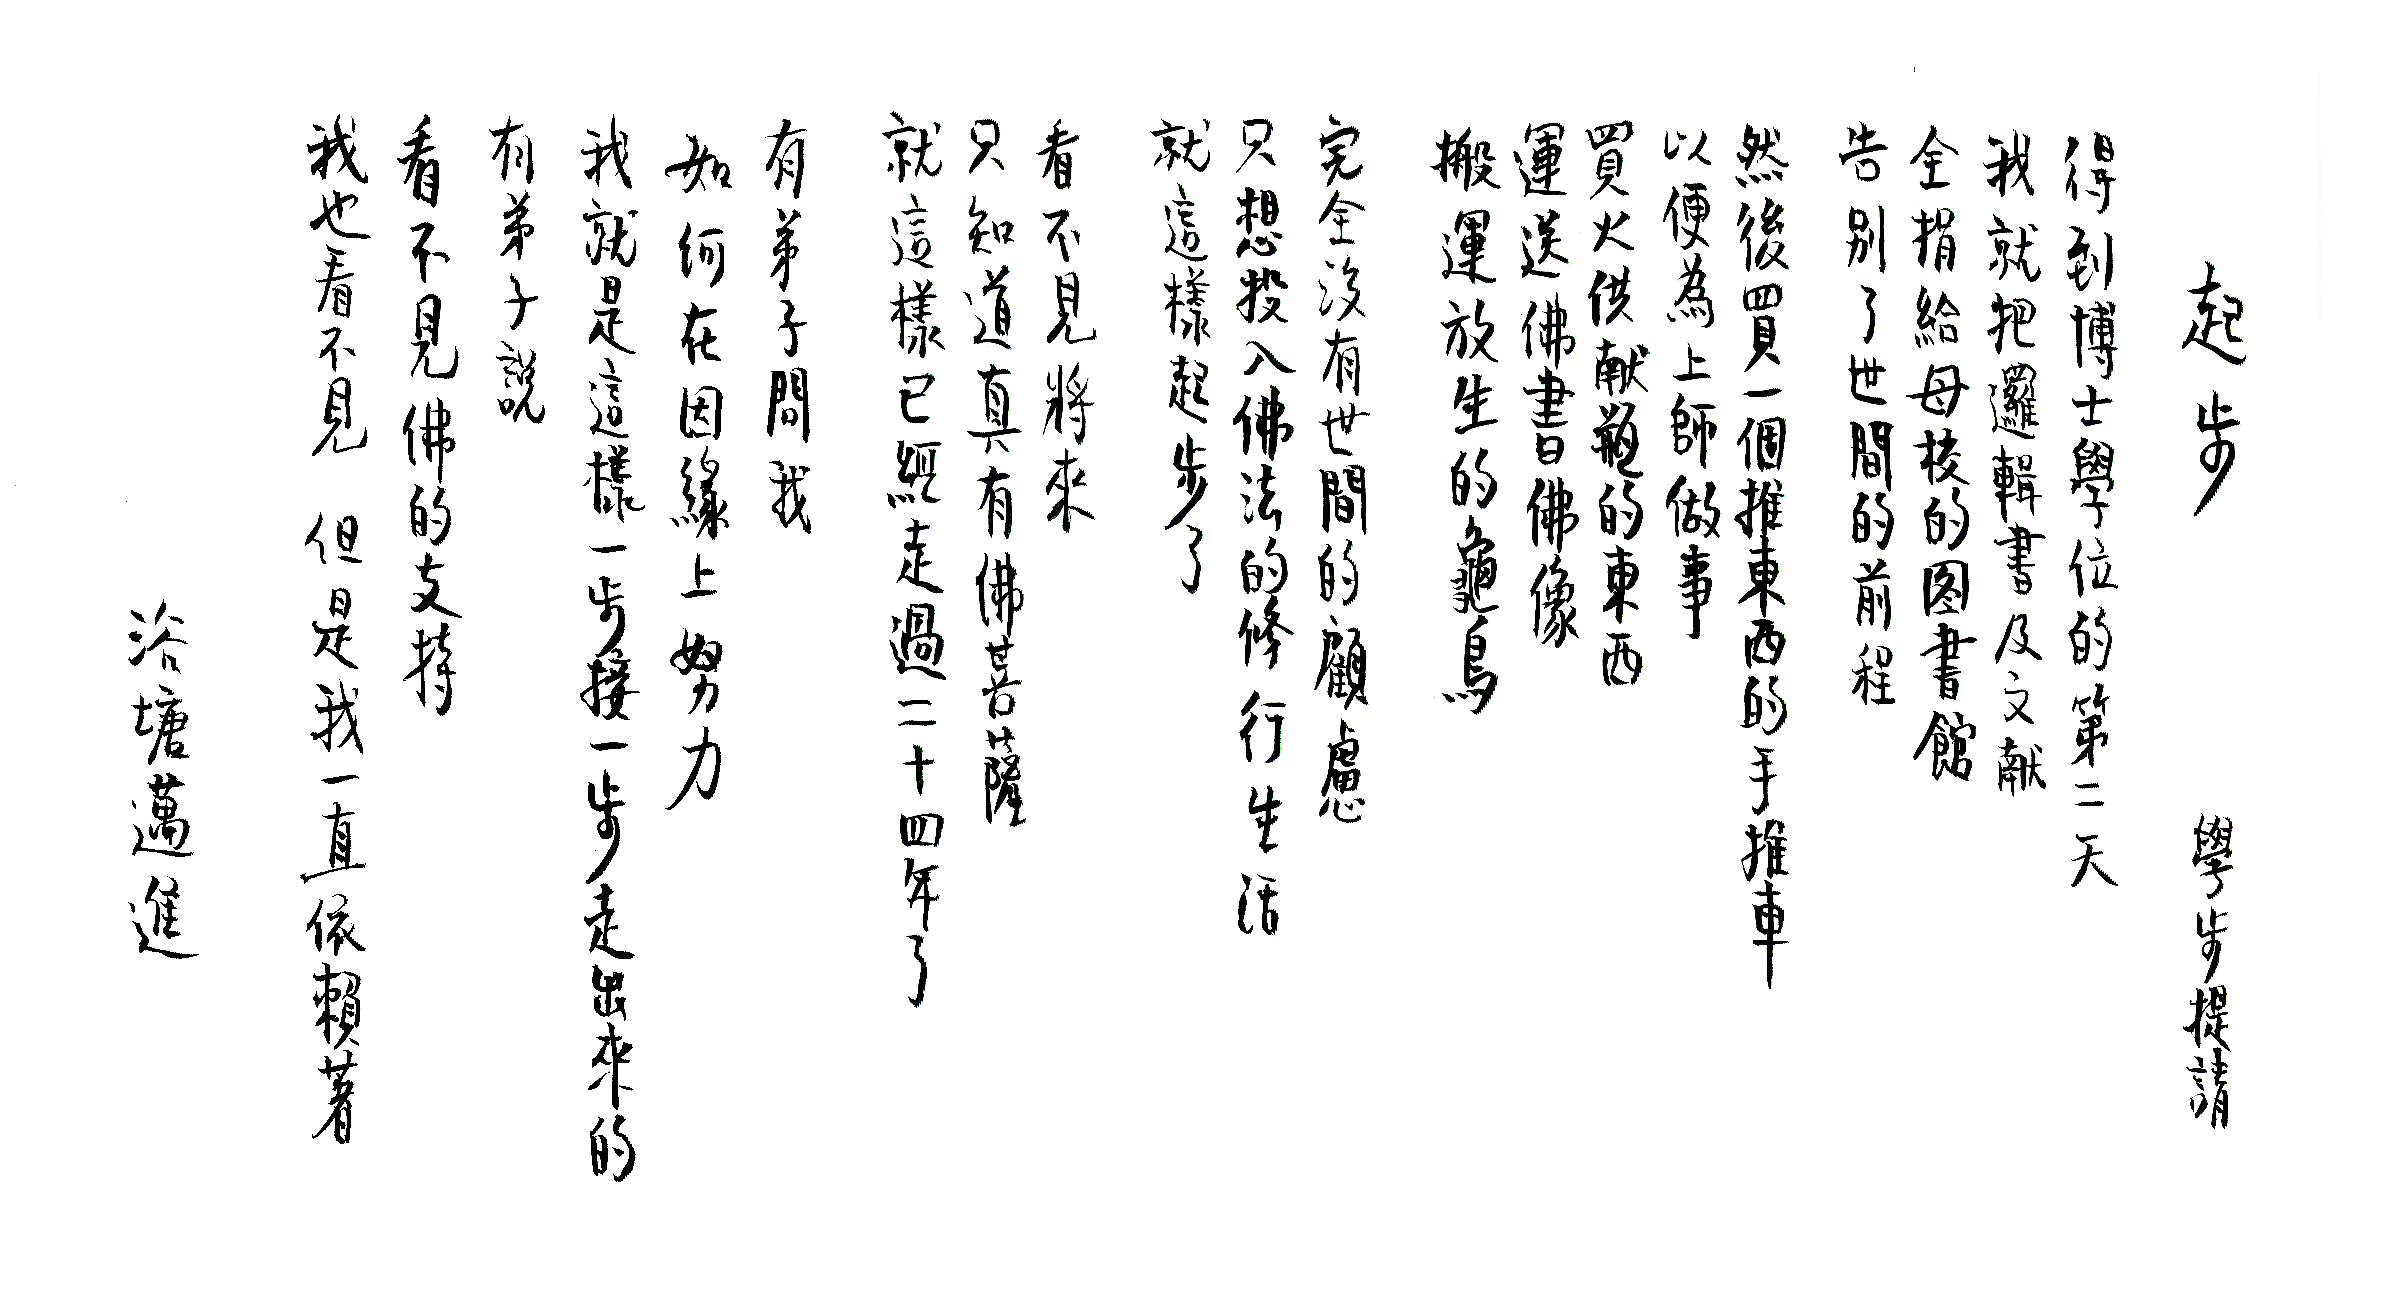 起步　學步提請
得到博士學位的第二天
我就把邏輯書及文献
全捐給母校的图書館
告別了世間的前程
然後買一個推東西的手推車
以便為上師做事
買火供献瓶的東西
運送佛書佛像
搬運放生的龜鳥
完全沒有世間的顧慮
只想投入佛法的修行生活
就這樣起步了
看不見將來
只知道真有佛菩薩
就這樣已經走過二十四年了
有弟子問我
如何在因緣上努力
我就是這樣一步接一步走出來的
有弟子說
看不見佛的支持
我也看不見　但是我一直依賴著
浴塘邁進